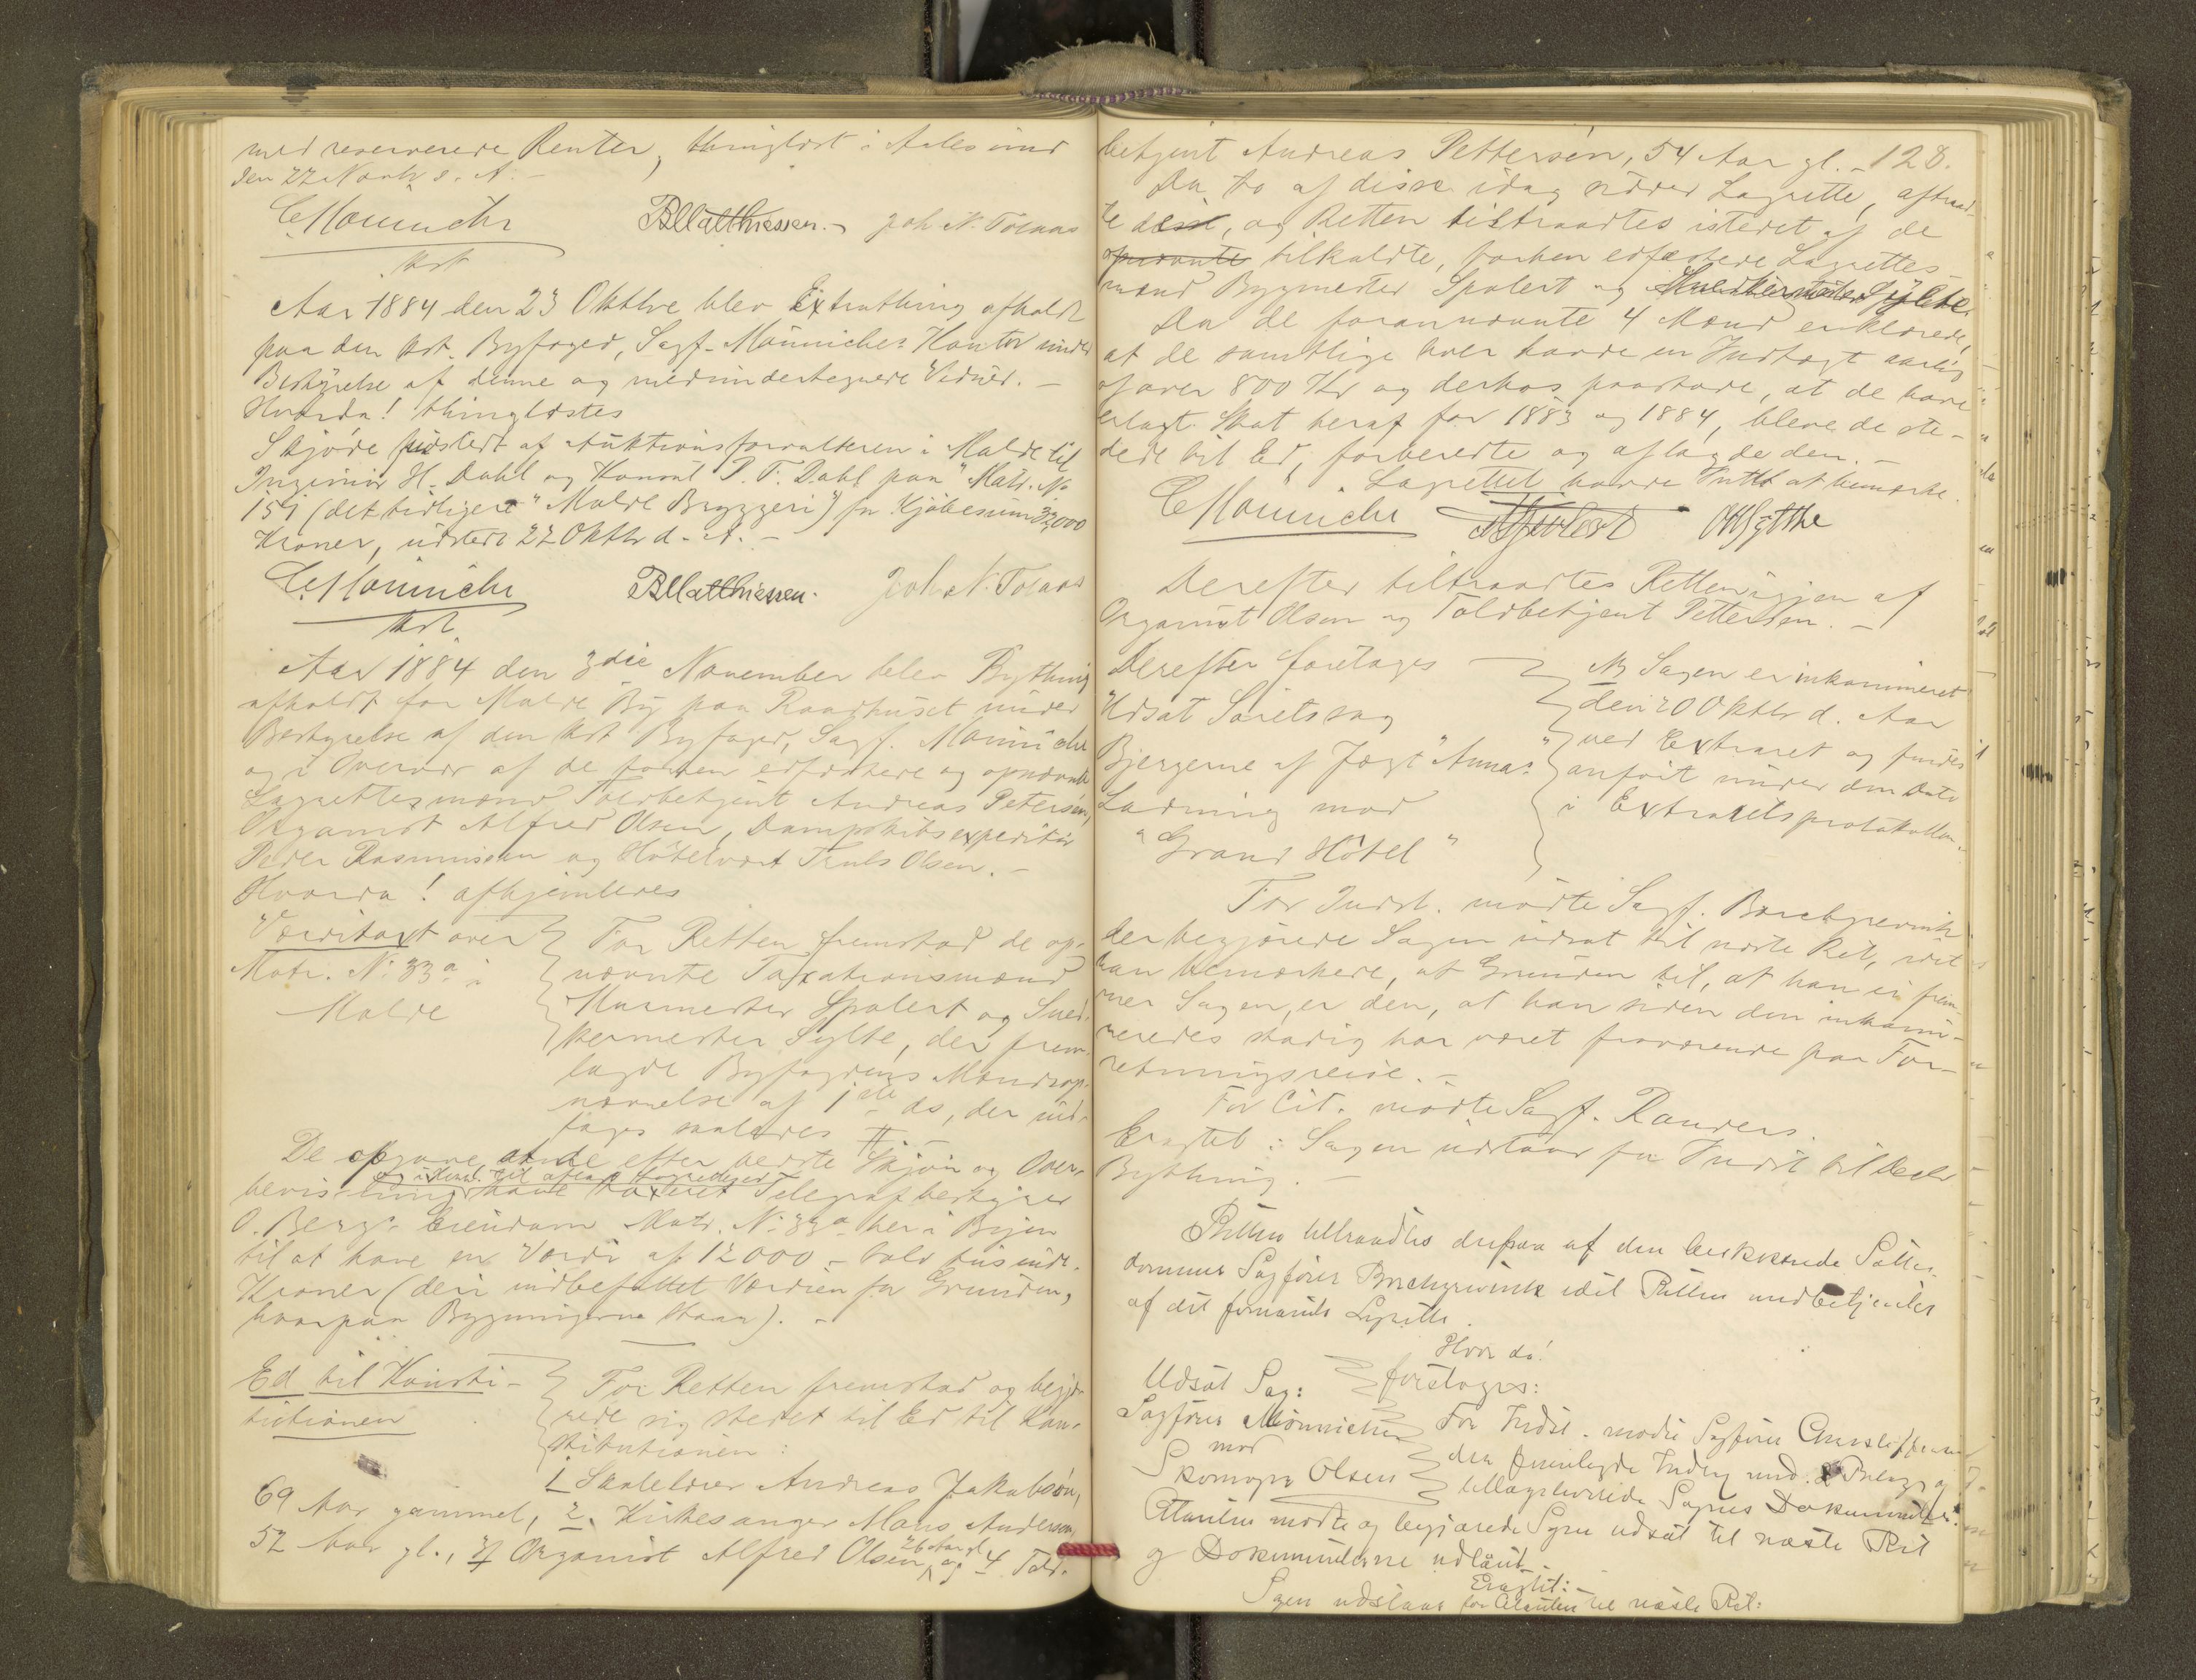 med reserverede Renter, thinglæst i Aalesund
den 22 Novbr s. A. -
C. Mønniche
kst
B Matthiessen. - Joh. N. Tøsaas
Aar 1884 den 23 Oktbre blev Extrathing afholdt
paa den kst. Byfoged, Sagf. Mønniches Kontor under
Bestyrelse af denne og medundertegnede Vidner. -
Hvorda! thinglæstes
Skjøde udstedt af Auktionsforvalteren i Molde til
Ingeniør H. Dahl og Konsul P. F. Dahl paa "Matr. No
151 (det tidligere "Molde Bryggeri") for Kjøbesum 32,000
Kroner, udstedt 22 Oktbr d. A. -
C. Mønniche
kst.
B Matthiessen. Joh. N. Tøsaas
Aar 1884 den 3die November blev Bything
afholdt for Molde By paa Raadhuset under
Bestyrelse af den kst Byfoged, Sagf. Mønniche
og i Overvær af de forhen edfæstede og opnævnte
Lagrettesmænd Toldbetjent Andreas Petersen,
Organist Alfred Olsen, Dampskibsexpeditør
Peder Rasmussen og Hotelvært Truls Olsen. -
Hvorda! afhjemledes
Værditaxt over
Matr. No 33a i
Molde
For Retten fremstod de op-
nævnte Taxationsmænd
Murmester Spolert og Sned-
kermester Sylte, der frem-
lagde Byfogdens Mændsop-
nævnelse af 1ste ds, der ind-
tages saaledes #
De opgave at de efter bedste Skjøn og Over-
bevisning have taxeret Telegrafbestyrer
O. Bergs Eiendom Matr. No 33a her i Byen
til at have en Værdi af 12000 - tolv tusinde
Kroner (deri indbefattet Værdien for Grunden,
hvorpaa Bygningerne staar). -
Ed til Konsti-
tutionen
For Retten fremstod og begjæ-
rede sig stedet til Ed til Kon-
stitutionen:
1 Skolelærer Andreas Jakobsen,
69 Aar gammel, 2. Kirkesanger Mons Andersen,
52 Aar gl., 3 Organist Alfred Olsen, 26 Aar gl og 4 Told-
betjent Andreas Pettersen, 54 Aar gl. - 128.
Da to af disse idag sidder Lagrette, aftraad-
te disse, og Retten tiltraadtes istedet af de
opnævnte tilkaldte, forhen edfæstede Lagrettes-
mænd Bygmester Spolert og Snedkermester Sylte.
Da de forannævnte 4 Mænd erklærede,
at de samtlige hver havde en Indtægt aarlig
af over 800 Kr og derhos paastode, at de have
erlagt Skat heraf for 1883 og 1884, bleve de ste-
dede til Ed, forberedte og aflagde den. -
Lagrettet havde Intet at bemærke.
C Mønniche Spolert O Sylthe
Derefter tiltraadtes Retten igjen af
Organist Olsen og Toldbetjent Pettersen. -
Derefter foretoges
Udsat Søretssag
Bjergerne af Jægt "Annas"
Ladning mod
"Grand Hôtel"
NB Sagen er inkamineret
den 20 Oktbr d. Aar
ved Extraret og findes
anført under den Dato
i Extraretsprotokollen.
For Indst. mødte Sagf. Borchgrevink
der begjærede Sagen udsat til næste Ret, idet
han bemærkede, at Grunden til, at han ei frem-
mer Sagen, er den, at han siden den inkami-
neredes stadig har været fraværende paa For-
retningsreise. -
For Cit. mødte Sagf. Randers.
Eragtet: Sagen udstaar for Indst. til Decbr
Bything. -
Retten tiltraadtes derpaa af den beskikkede Sætte-
dommer Sagfører Borchgrevink idet Retten medbetjentes
af det fornævnte Lagrette.
Hvor da!
foretoges:
Udsat Sag:
Sagfører Mønniche
mod
Skomager Olsen
For Indst. mødte Sagfører
der fremlagde Indlæg med Bilag og
tilbageleverede Sagens Dokumenter.
Citanten mødte og begjærede Sagen udsat til næste Ret
og Dokumenterne udlånt. -
Eragtet: -
Sagen udstaar for Citanten til næste Ret: